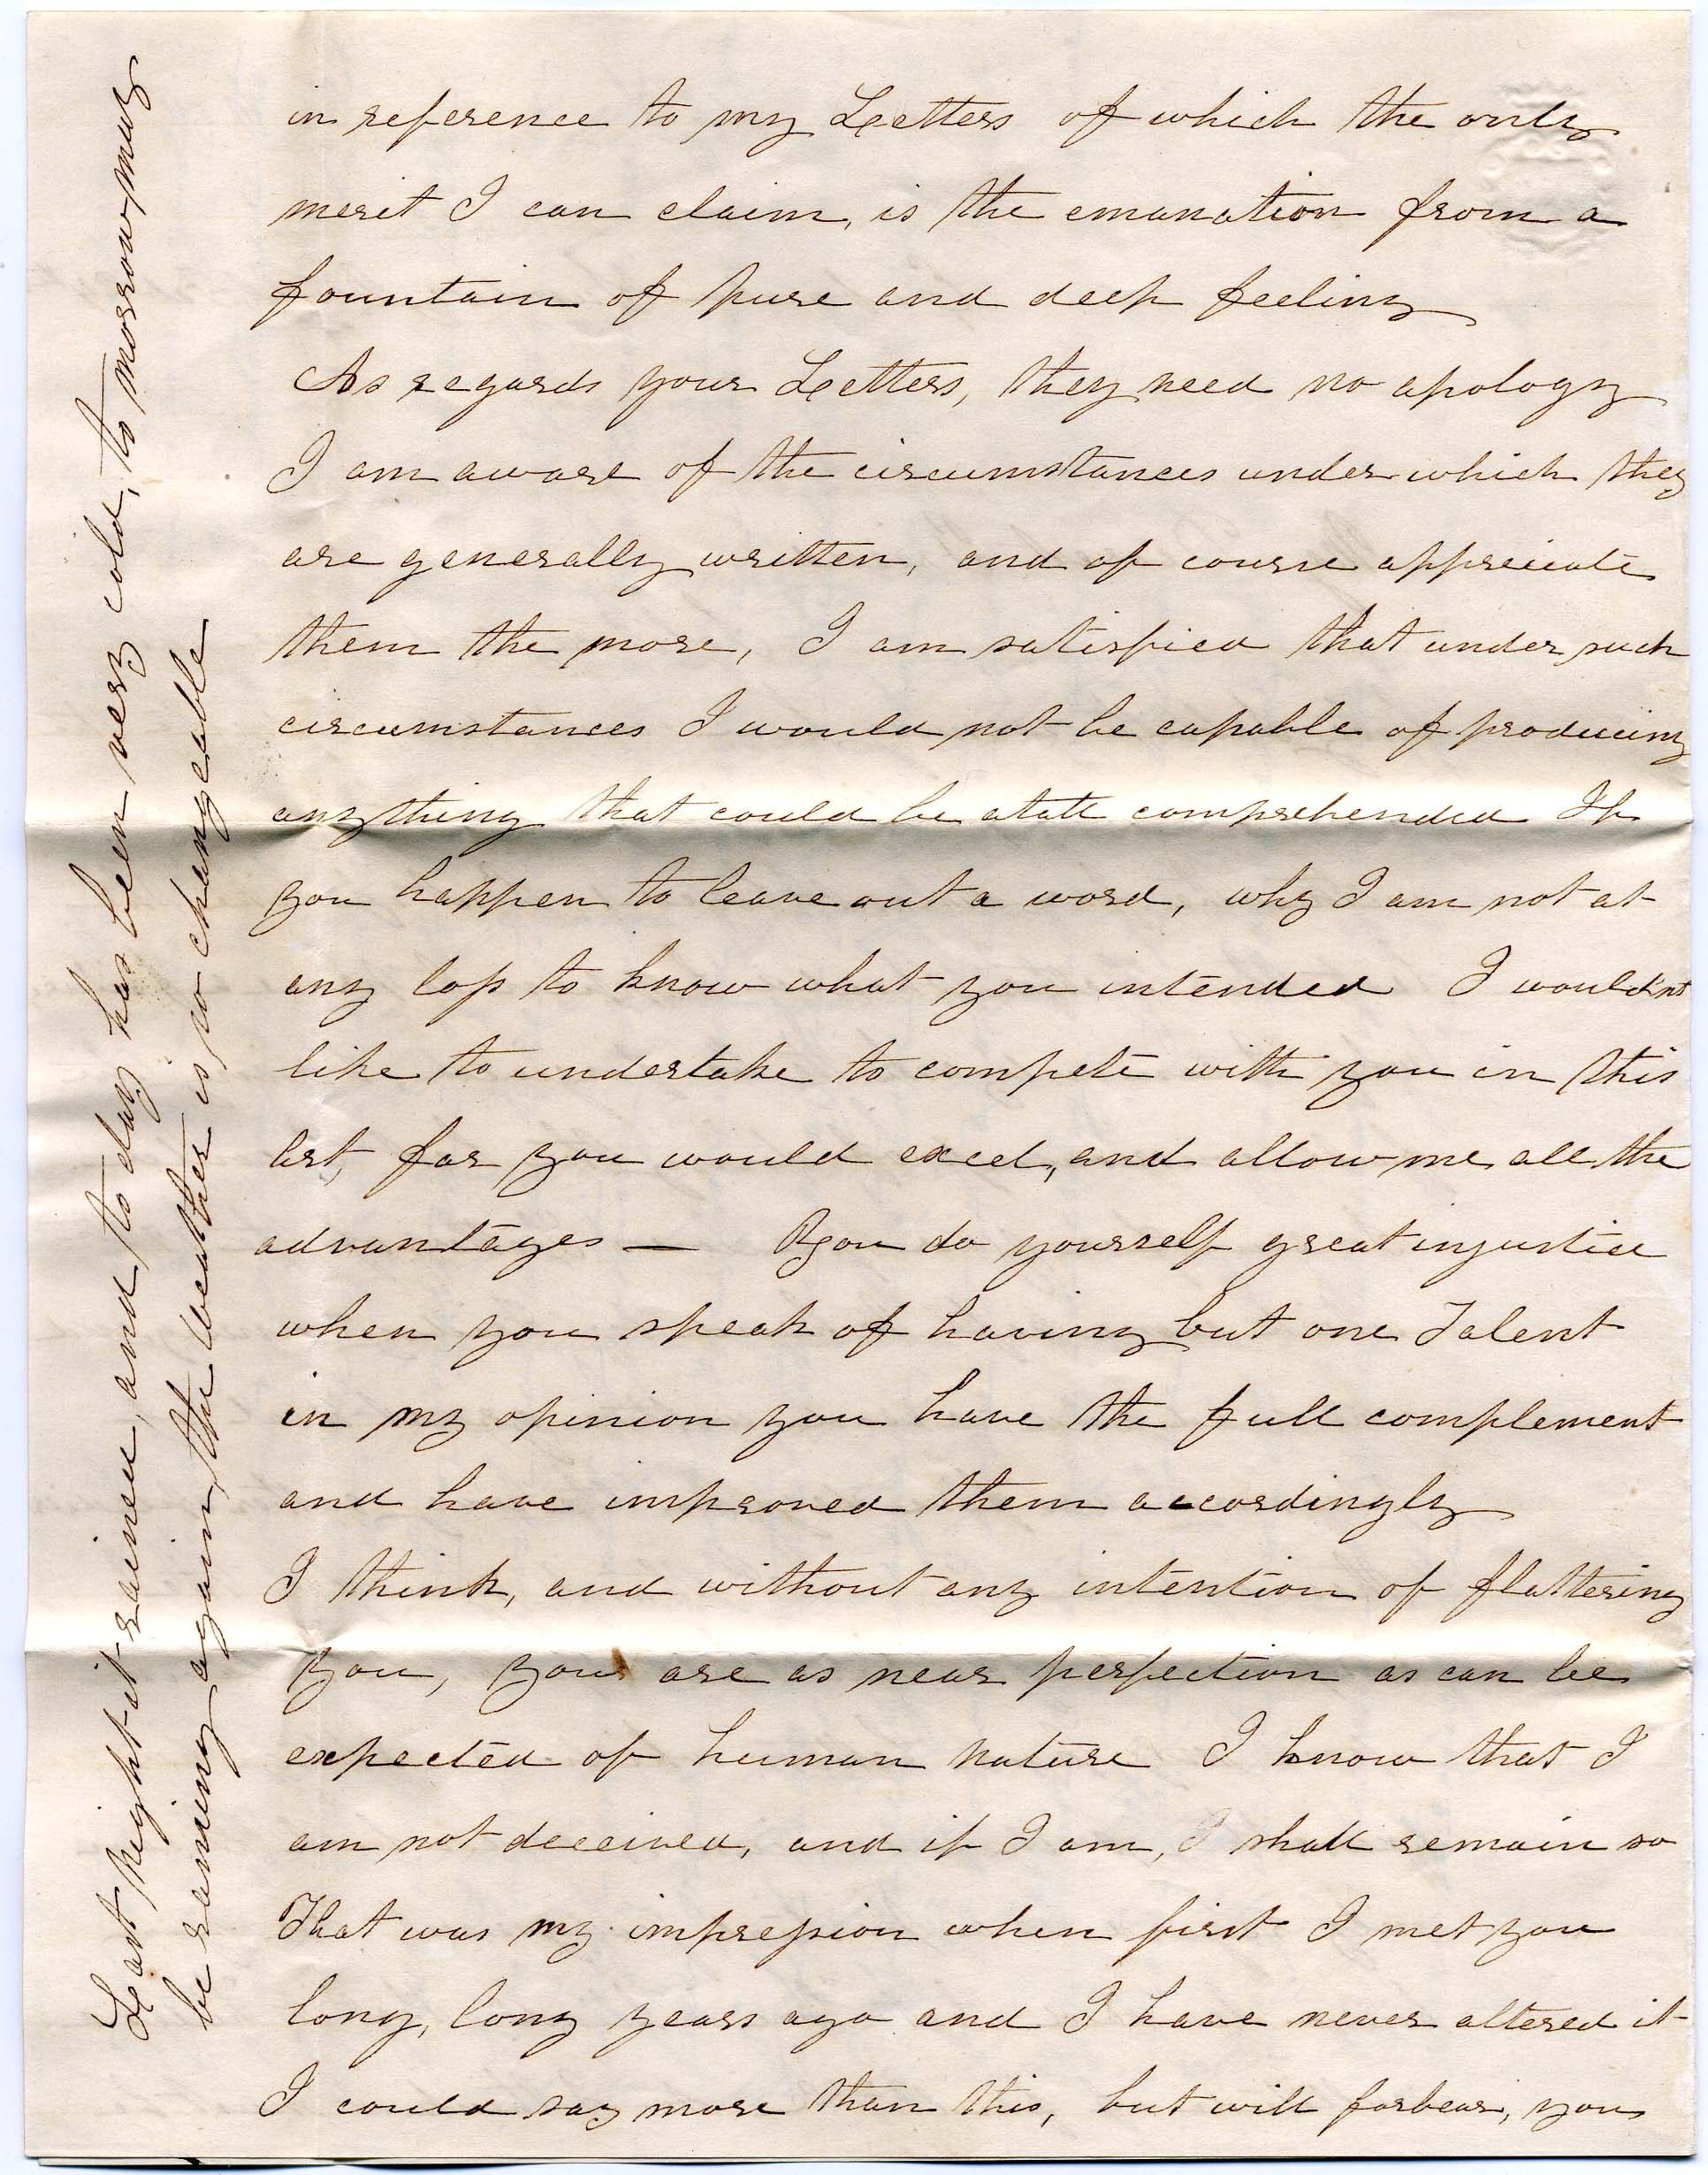 in reference to my Letters of which the only
merit I can claim, is the emanation from a
fountain of pure and deep feeling
As regards your Letters, they need no apology
I am aware of the circumstances under which they
are generally written, and of course appreciate
them the more, I am satisfied that under such
circumstances I would not be capable of producing
anything that could be atall comprehended If
you happen to leave out a word, why I am not at
any loss to know what you intended I wouldnt
like to undertake to compete with you in this
art, for you would excel, and allow me all the
advantages — You do yourself great injustice
when you speak of having but one Talent
in my opinion you have the full complement
and have improved them accordingly
I think, and without any intention of flattering
you, you are as near perfection as can be
expected of human nature I know that I
am not deceived, and if I am, I shall remain so
That was my impression when first I met you
long, long years ago and I have never altered it
I could say more than this, but will forbear, you
Last night it rained, and to day has been very cold, to morrow may
be raining again, the weather is so changeable